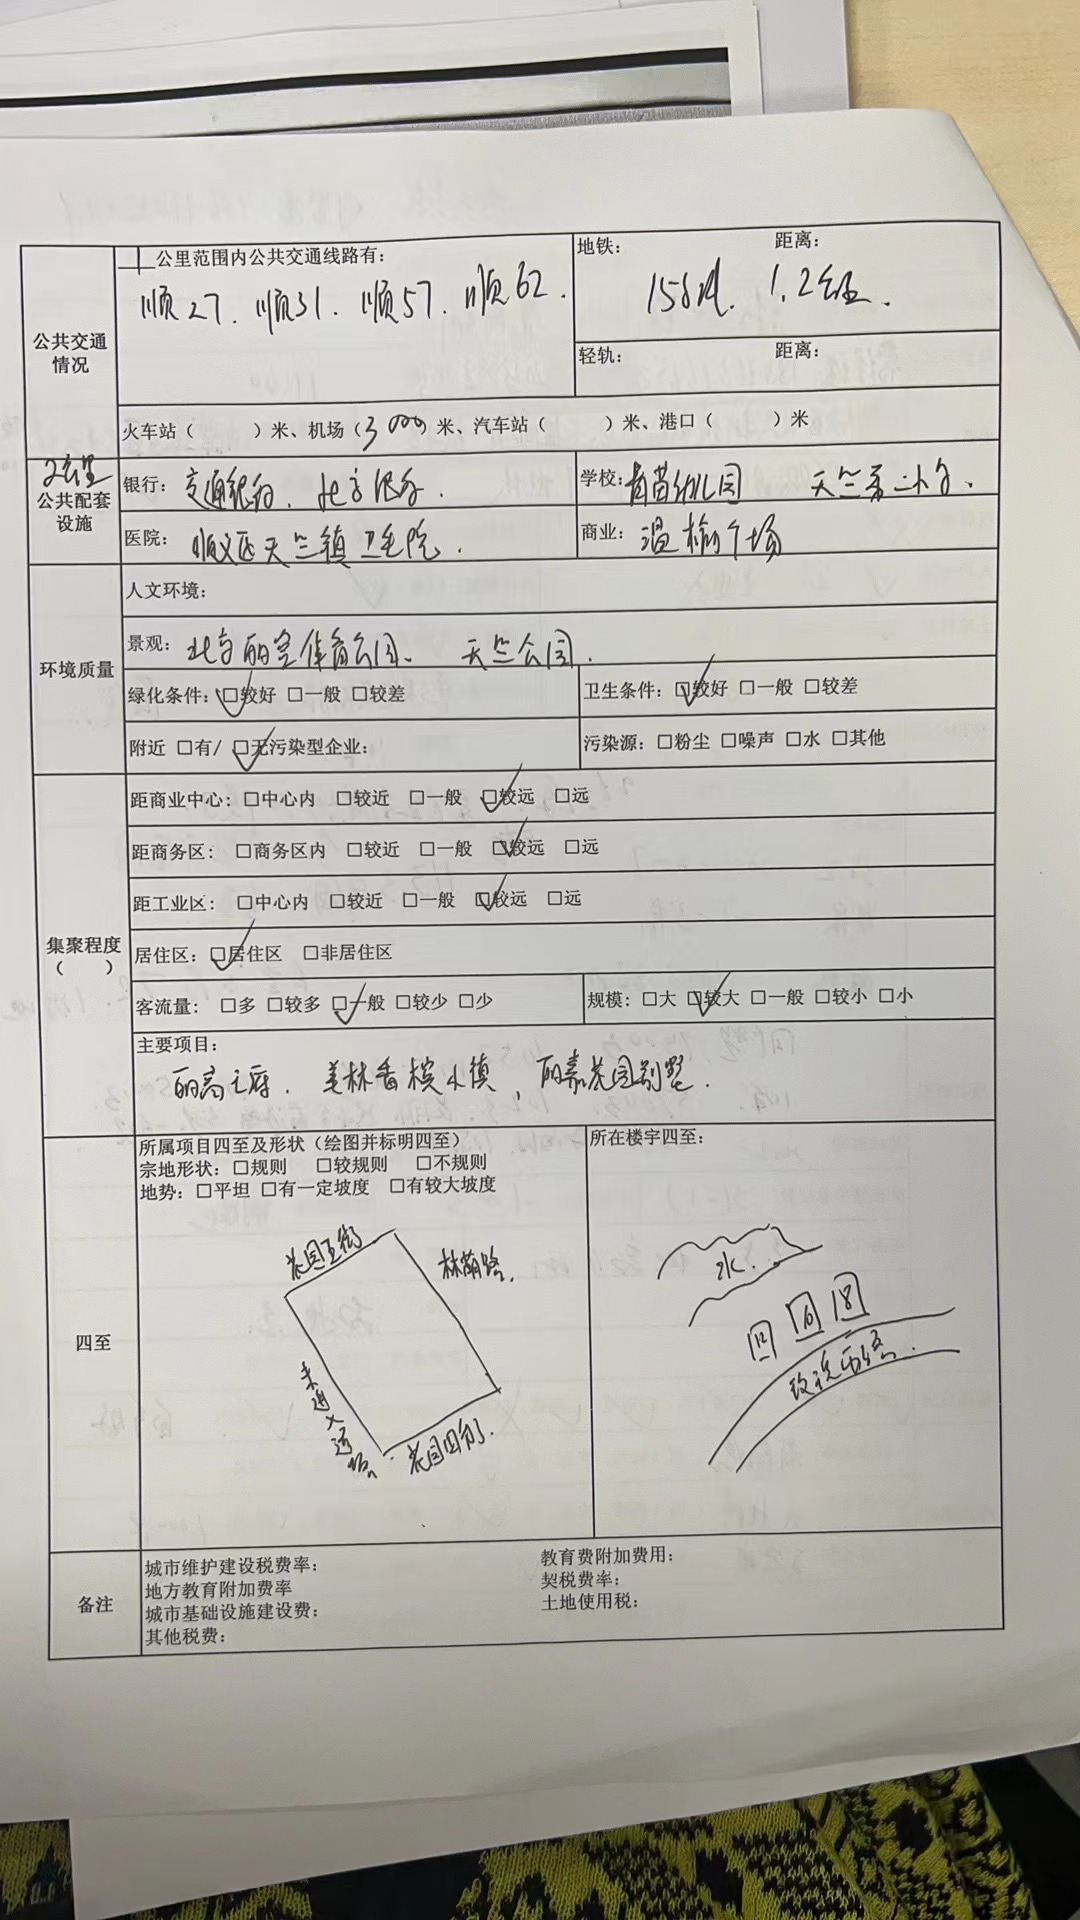 公共交通情况
一公里范围内公共交通线路有：
顺27. 顺31. 顺57. 顺62.
地铁： 距离：
15号线. 1.2公里.
轻轨： 距离：
火车站（ ）米、机场（3000）米、汽车站（ ）米、港口（ ）米
2公里
公共配套设施
银行：交通银行. 北京银行.
学校：育苗幼儿园 天竺第二小学.
医院：顺义区天竺镇卫生院.
商业：温榆广场
环境质量
人文环境：
景观：北京丽宫体育公园、 天竺公园.
绿化条件：☑较好 □一般 □较差
卫生条件：☑较好 □一般 □较差
附近 □有/ ☑无污染型企业：
污染源：□粉尘 □噪声 □水 □其他
集聚程度（ ）
距商业中心：□中心内 □较近 □一般 ☑较远 □远
距商务区：□商务区内 □较近 □一般 ☑较远 □远
距工业区：□中心内 □较近 □一般 ☑较远 □远
居住区：☑居住区 □非居住区
客流量：□多 □较多 ☑一般 □较少 □少
规模：□大 ☑较大 □一般 □较小 □小
主要项目：
丽高王府. 美林香槟小镇, 丽嘉花园别墅.
四至
所属项目四至及形状（绘图并标明四至）
宗地形状：□规则 □较规则 □不规则
地势：□平坦 □有一定坡度 □有较大坡度
花园五街
林荫路.
花园四街.
所在楼宇四至：
水.
12 10 8
备注
城市维护建设税费率：
教育费附加费用：
地方教育附加费率
契税费率：
城市基础设施建设费：
土地使用税：
其他税费：